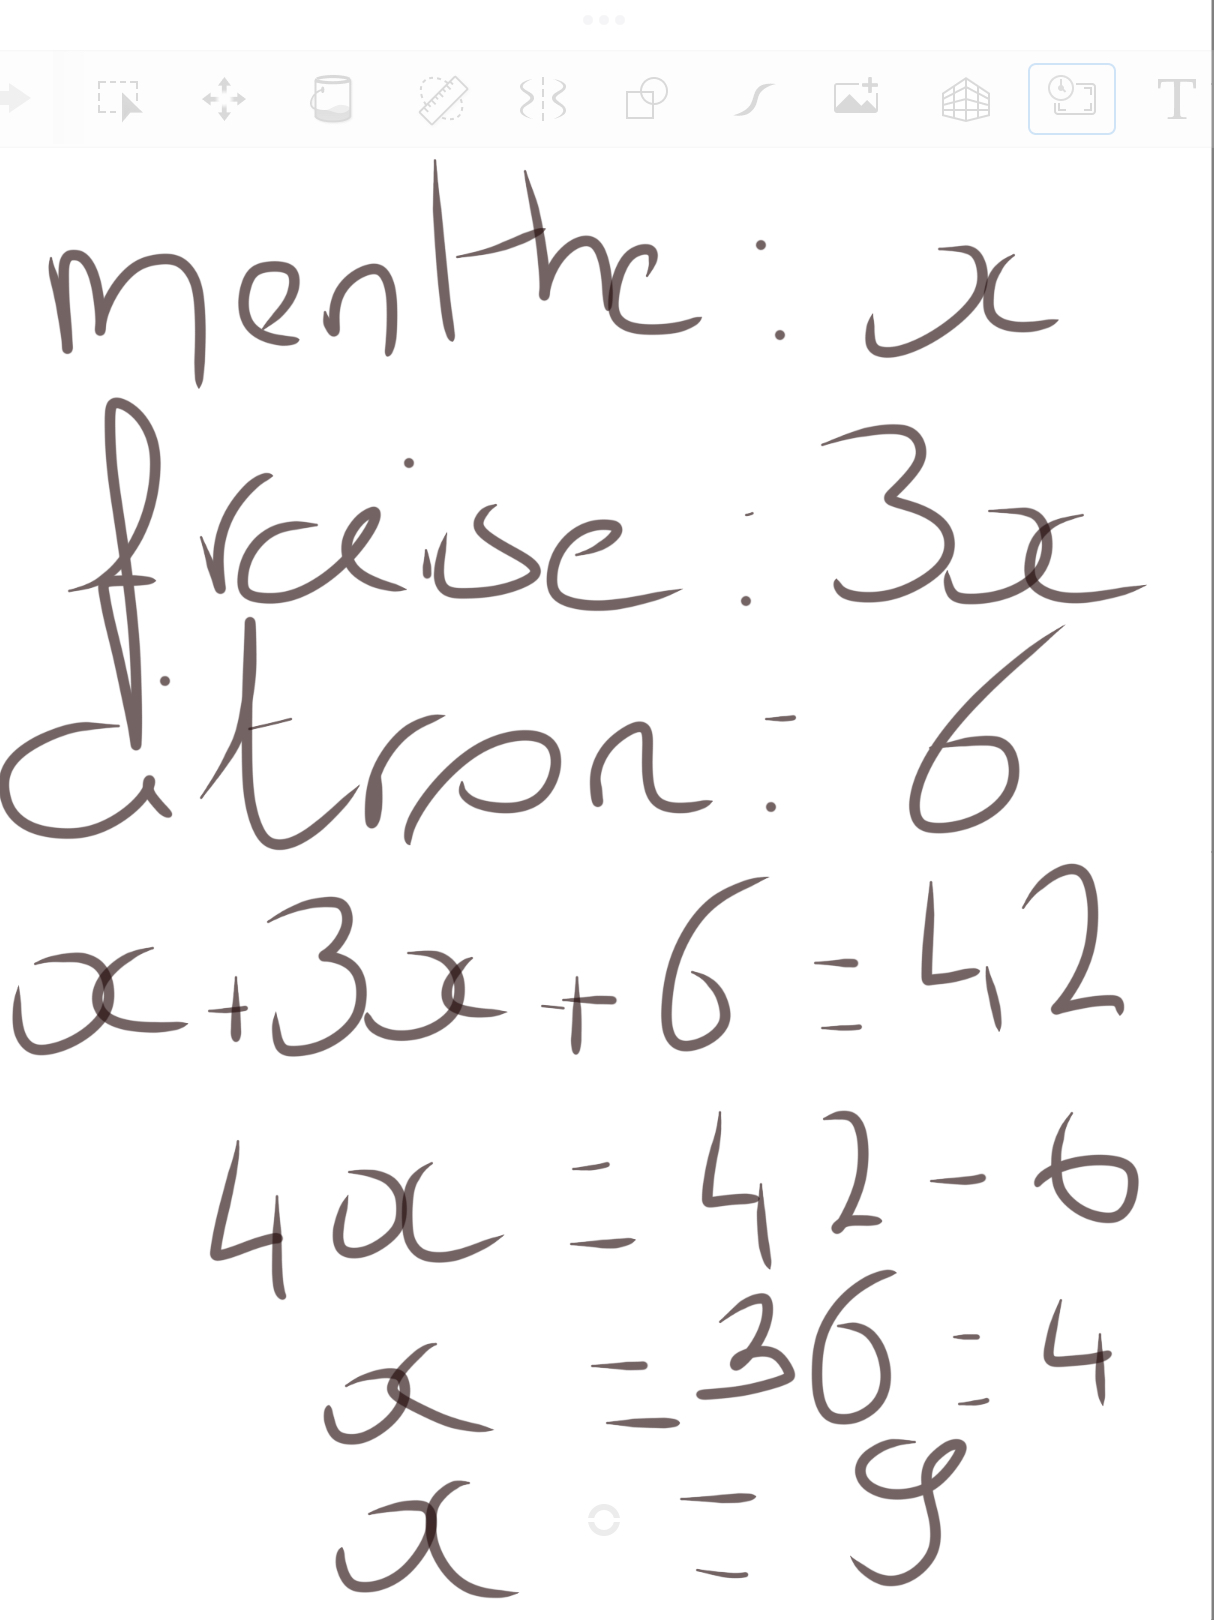 menthe : x
fraise : 3x
citron : 6
x + 3x + 6 = 42
4x = 42 - 6
x = 36 = 4
x = 9
T